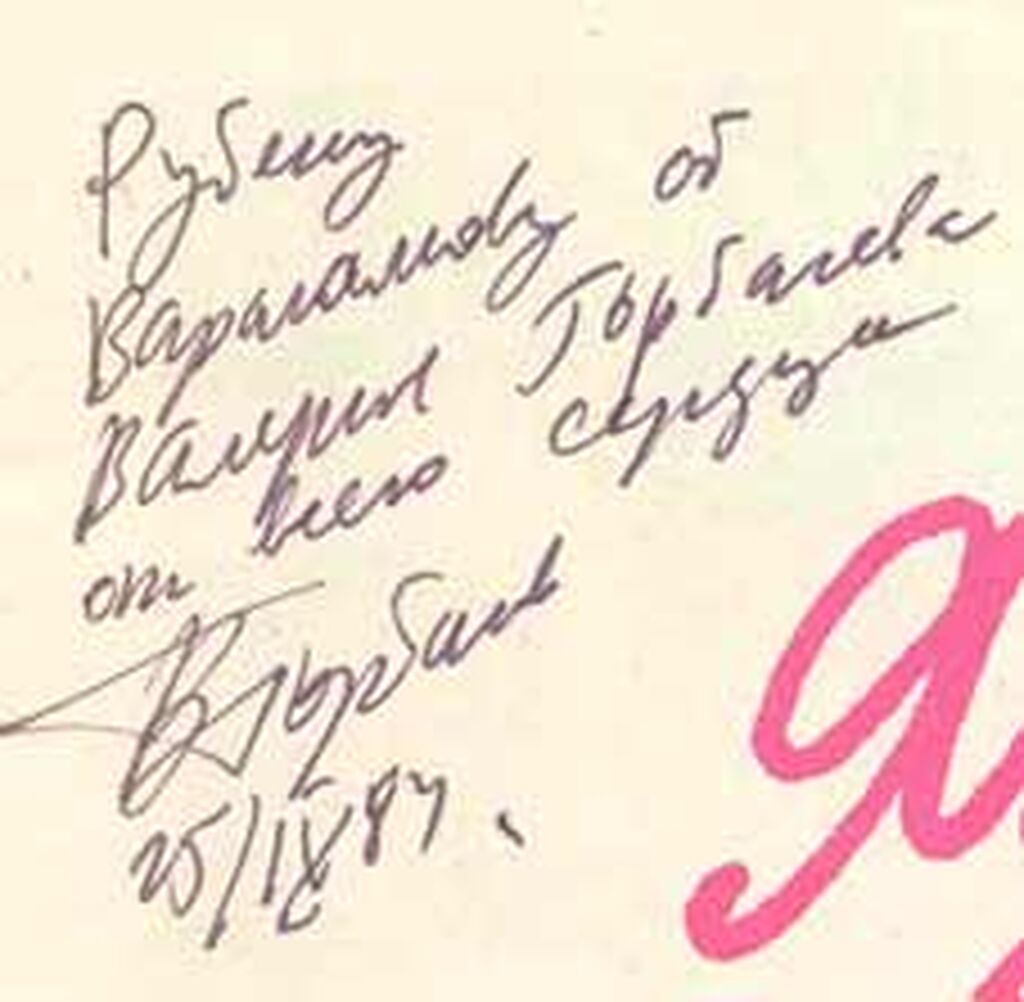 Рубену
Варагамову от
Валерия Горбачева
от всего сердца
В Горбачев
25/IX 87
Я